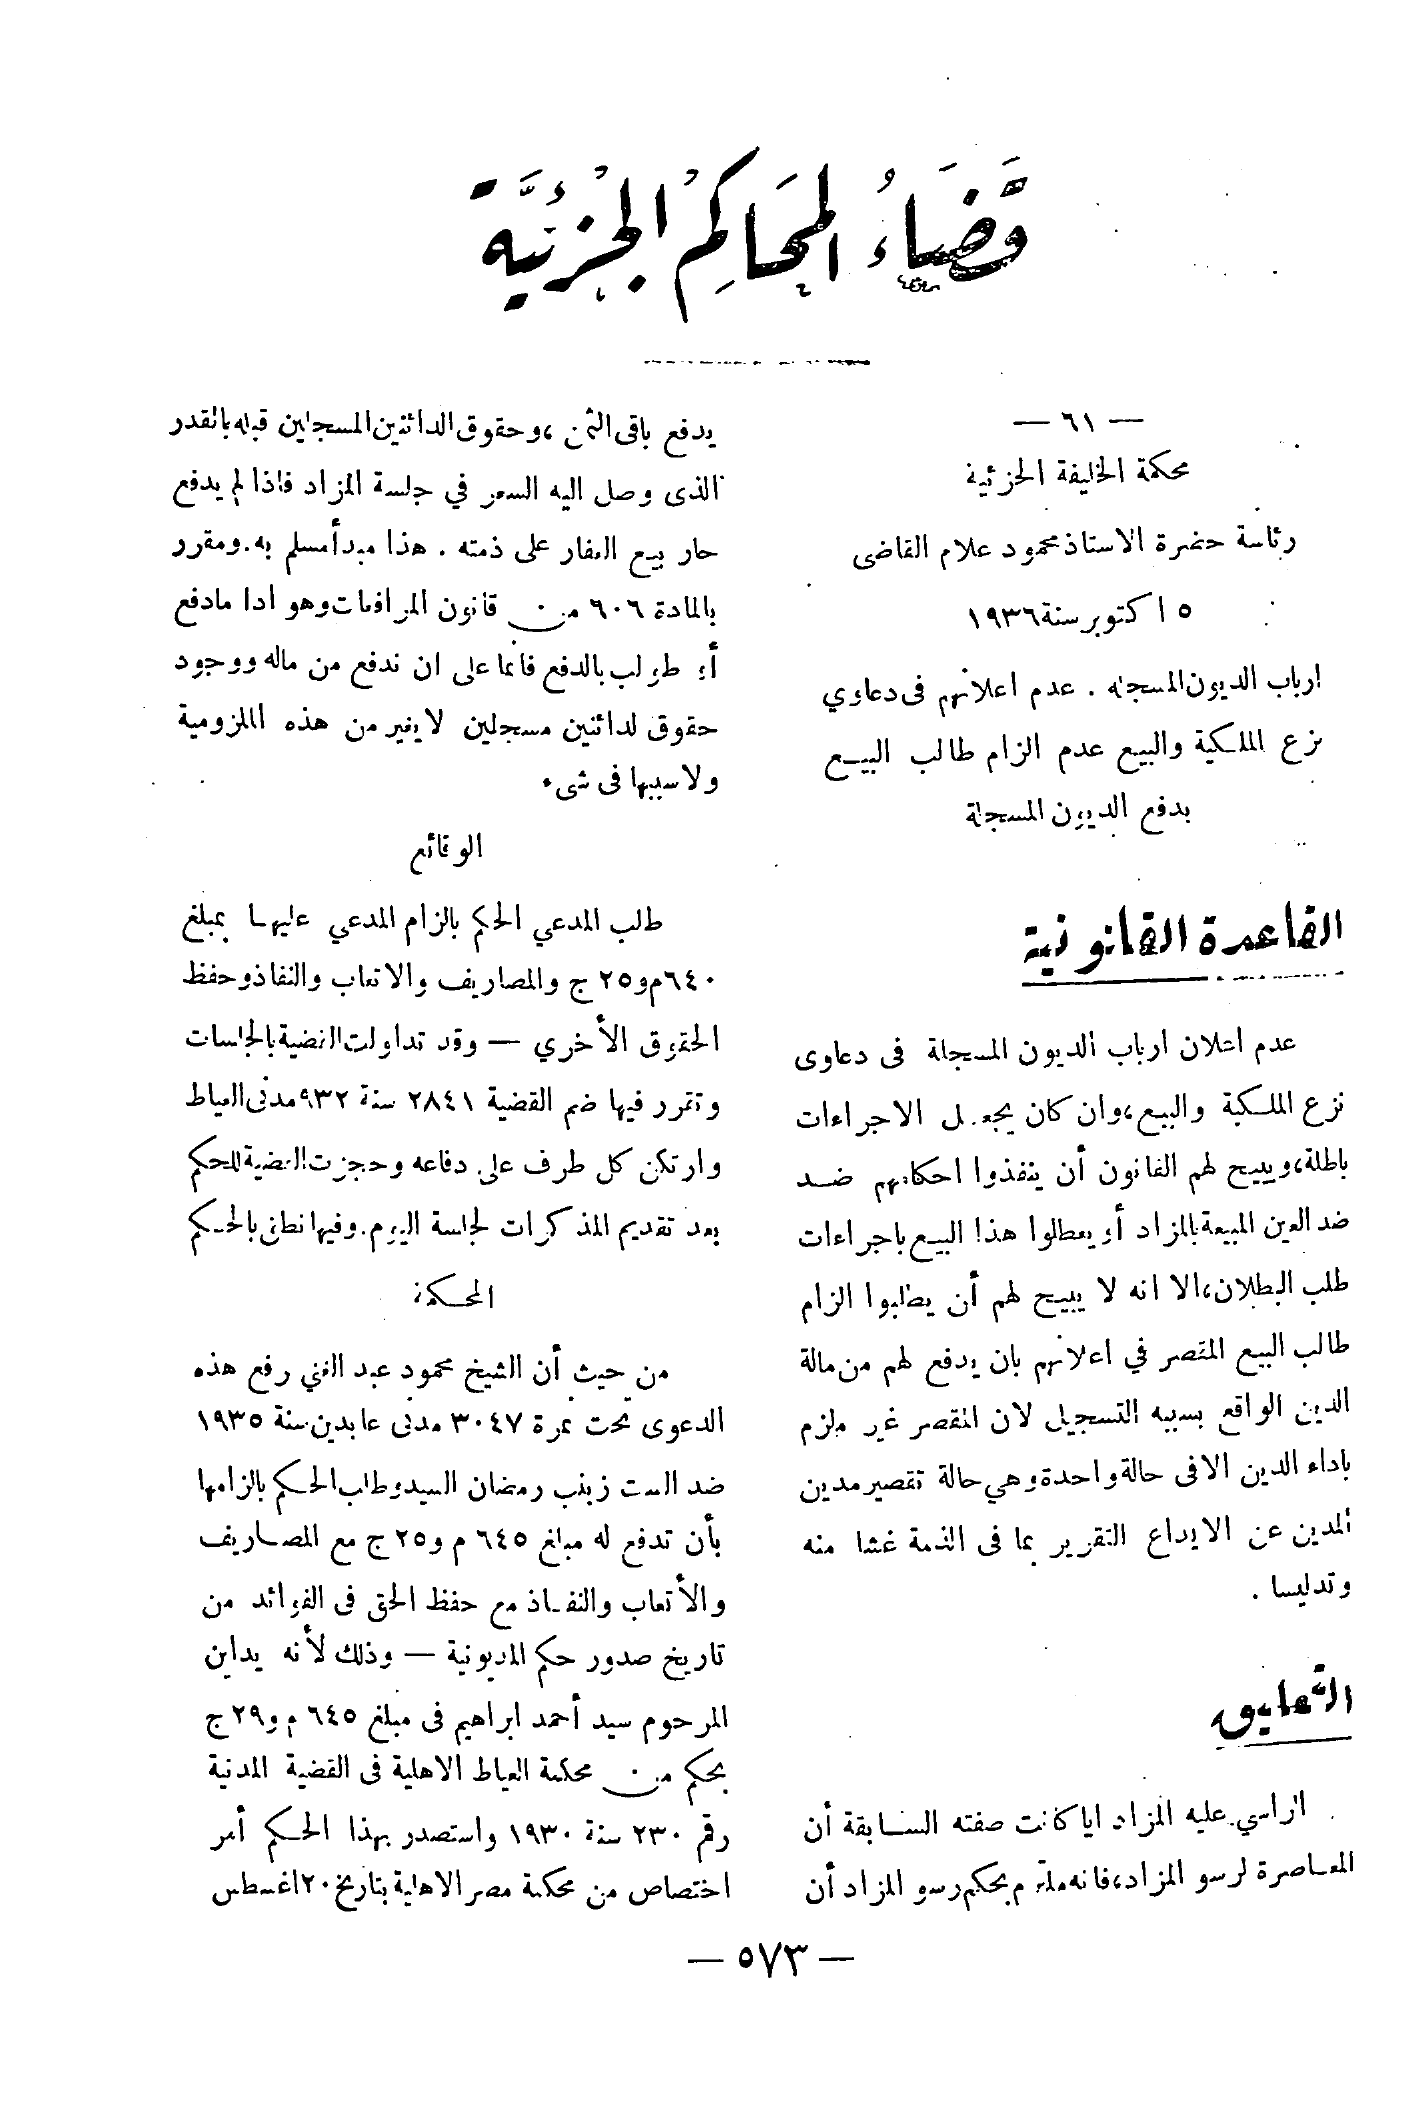 قَضَاءُ المحَاكِمُ الجُزْئيَّة
— ٦١ —
محكمة الخليفة الجزئية
رئاسة حضرة الاستاذ محمود علام القاضى
٥ اكتوبر سنة ١٩٣٦
ارباب الديون المسجله . عدم اعلانهم فى دعاوي
نزع الملكية والبيع عدم الزام طالب البيع
بدفع الديون المسجلة
القاعدة القانونية
عدم اعلان ارباب الديون المسجلة فى دعاوى
نزع الملكية والبيع، وان كان يجعل الاجراءات
باطلة، ويبيح لهم القانون أن ينفذوا احكامهم ضد
ضد العين المبيعة بالمزاد أو يعطلوا هذا البيع باجراءات
طلب البطلان، الا انه لا يبيح لهم أن يطلبوا الزام
طالب البيع المقصر في اعلانهم بان يدفع لهم من مالة
الدين الواقع بسببه التسجيل لان المقصر غير ملزم
باداء الدين الا فى حالة واحدة وهي حالة تقصير مدين
المدين عن الايداع التقرير بما فى الذمة غشا منه
وتدليسا .
التعليق
الراسي عليه المزاد ايا كانت صفته السابقة أن
المعاصرة لرسو المزاد، فانه ملزم بحكم رسو المزاد أن
يدفع باقى الثمن، وحقوق الدائنين المسجلين قبله بالقدر
الذى وصل اليه السعر في جلسة المزاد فاذا لم يدفع
جاز بيع العقار على ذمته . هذا مبدأ مسلم به. ومقرر
بالمادة ٦٠٦ من قانون المرافعات وهو اذا مادفع
أو طولب بالدفع فانما على ان ندفع من ماله ووجود
حقوق لدائنين مسجلين لا يغير من هذه الملزومية
ولا سببها فى شىء
الوقائع
طالب المدعي الحكم بالزام المدعي عليها بمبلغ
٦٤٠م و٢٥ ج والمصاريف والاتعاب والنفاذ وحفظ
الحقوق الأخري — وقد تداولت القضية بالجلسات
وتقرر فيها ضم القضية ٢٨٤١ سنة ٩٣٢ مدنى العياط
وارتكن كل طرف على دفاعه وحجزت القضية للحكم
بعد تقديم المذكرات لجلسة اليوم. وفيها نطق بالحكم
المحكمة
من حيث أن الشيخ محمود عبد الغني رفع هذه
الدعوى تحت نمرة ٣٠٤٧ مدنى عابدين سنة ١٩٣٥
ضد الست زينب رمضان السيد وطلب الحكم بالزامها
بأن تدفع له مبلغ ٦٤٥ م و٢٥ ج مع المصاريف
والأتعاب والنفاذ مع حفظ الحق فى الفوائد من
تاريخ صدور حكم المديونية — وذلك لأنه يداين
المرحوم سيد أحمد ابراهيم فى مبلغ ٦٤٥ م و٢٩ ج
بحكم من محكمة العياط الاهلية فى القضية المدنية
رقم ٢٣٠ سنة ١٩٣٠ واستصدر بهذا الحكم أمر
اختصاص من محكمة مصر الاهلية بتاريخ ٢٠ اغسطس
— ٥٧٣ —